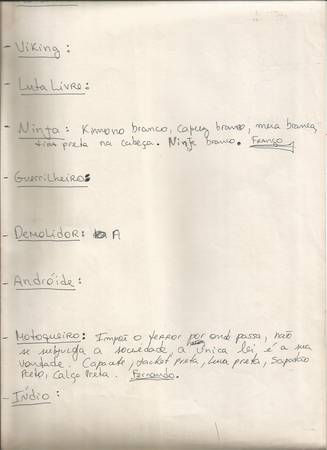 - Viking:
- Luta Livre:
- Ninja: Kimono branco, capuz branco, meia branca,
tira preta na cabeça. Ninja branco. França
- Guerrilheiros
- Demolidor: A
- Andróide:
- Motoqueiro: Impõe o terror por onde passa, não
se a sociedade a única lei é a sua
vontade. Capacete, Jacket preta, luva preta, Sapatão
Preto, Calça Preta. Fernando.
- Índio: